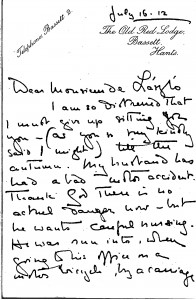 Telephone: Bassett 8.
July 16. 12
The Old Red Lodge,
Bassett,
Hants.
Dear Monsieur de László
I am so distressed that
I must give up sitting for
you – (as you so very kindly
said I might) till the
autumn. My husband has
had a bad motor accident.
Thank God there is no
actual danger now – but
he wants careful nursing.
He was run into, when
going to his office on a
motor bicycle, by a carriage